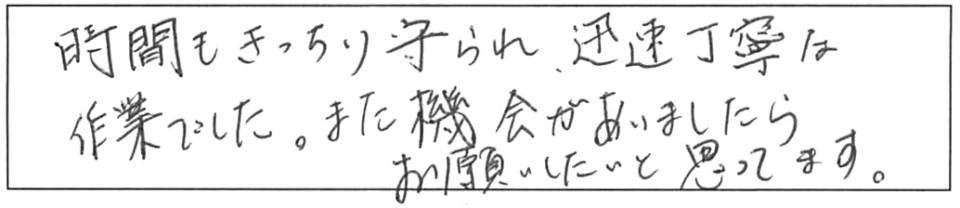 時間もきっちり守られ、迅速丁寧な
作業でした。また機会がありましたら
お願いしたいと思ってます。